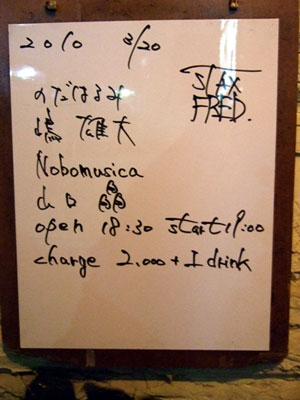 2010 3/20
STAX
FRED.
のだはるみ
嶋 雄大
Nobomusica
山口 晶
open 18:30 start 19:00
charge 2.000 + 1 drink